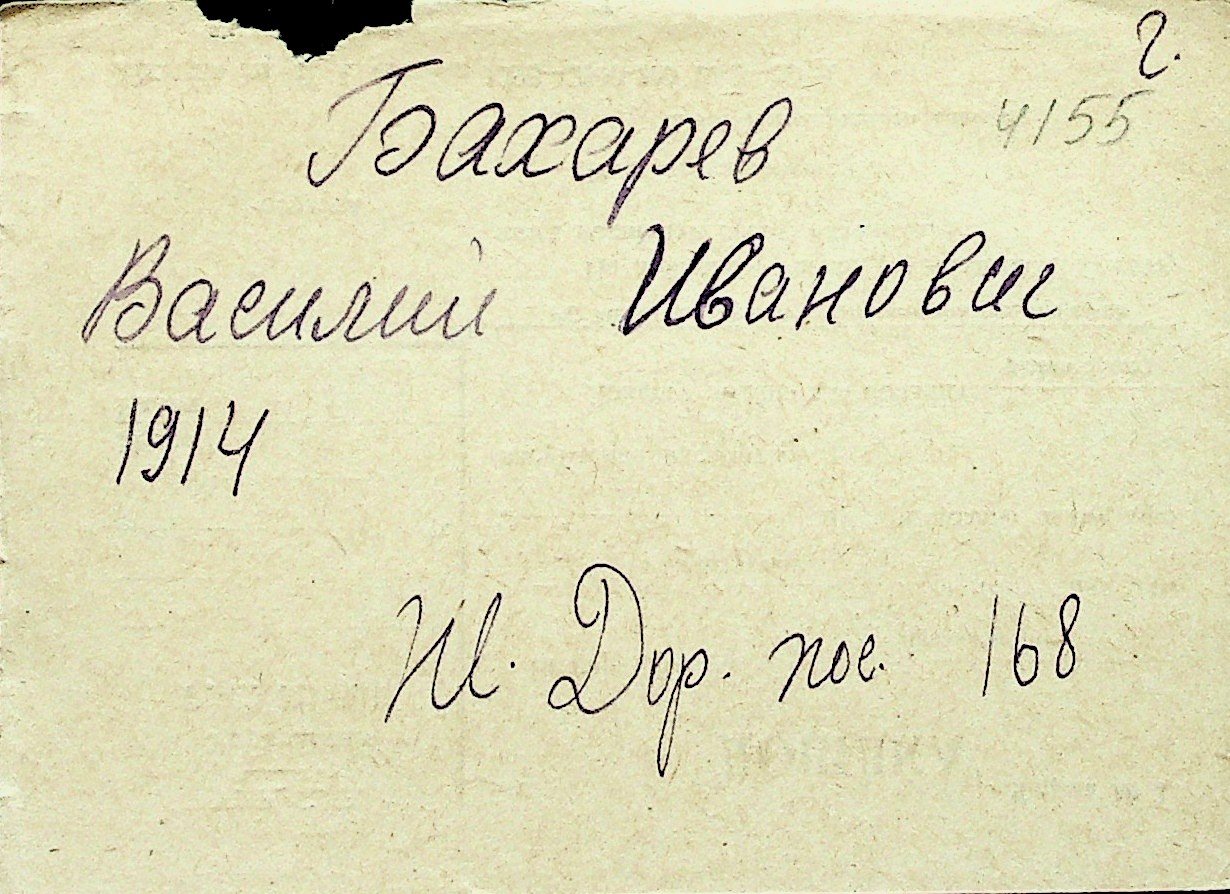 г.
4155
Бахарев
Василий Иванович
1914
Ж. Дор. пос. 168